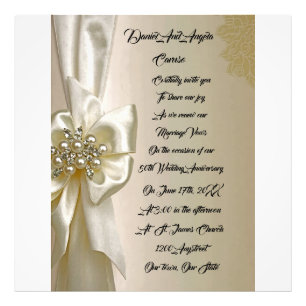 Daniel And Angela
Caruso
Cordially invite you
To share our joy
As we renew our
Marriage Vows
On the occasion of our
50th Wedding Anniversary
On June 17th, 20XX
At 3:00 in the afternoon
At St. James Church
1200 Anystreet
Our town, Our State